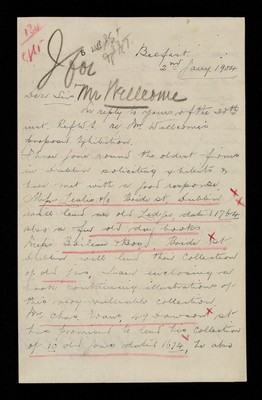 Belfast.
2nd Jany 1904
Mr Wellcome
Dear Sir
In reply to yours of the 28th
ust. Ref W.S. re Mr Wellcome's
proposed Exhibition.
I have gone round the oldest firms
in Dublin soliciting exhibits &
have met with a good response.
Messrs Leslie & Co Bride St. Dublin
will lend us old Ledger, dated 1764
also a few old day books
Messrs Boileau & Boyd, Bride St
Dublin will lend their collection
of old jars, I am enclosing a
book containing illustrations of
this very valuable collection.
Mr Chas. Evans, 49 Dawson St
has promised to lend his collection
of 10 old jars dated 1674, he also